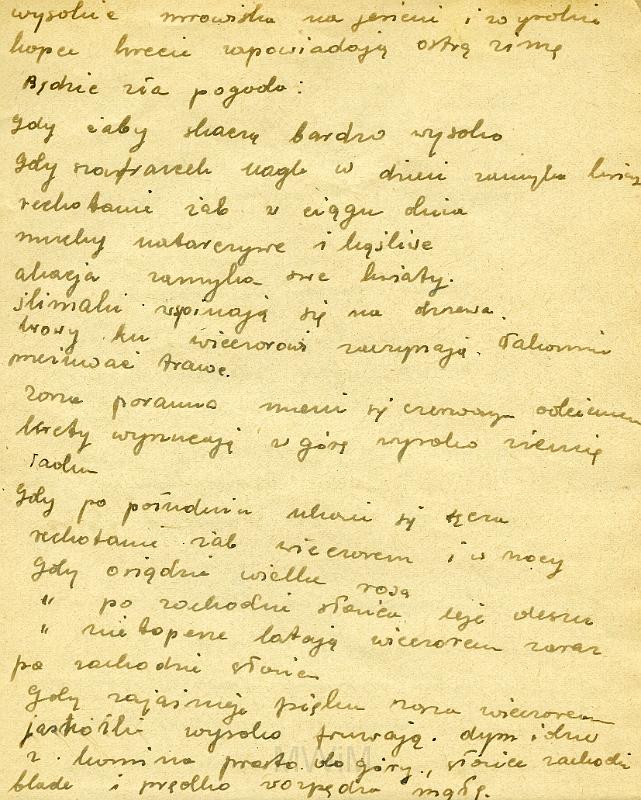 wysokie mrowiska na jesieni i wysokie
kopce krecie zapowiadają ostrą zimę
Będzie zła pogoda:
Gdy żaby skaczą bardzo wysoko
Gdy nagle w dzień zamyka
rechotanie żab w ciągu dnia
muchy natarczywe i kąśliwe
akacja zamyka swe kwiaty.
ślimaki wspinają się na drzewa.
krowy ku wieczorowi zaczynają łakomie
przeżuwać trawę.
zorza poranna mieni się czerwonym odcieniem
krety wyrzucają w górę wysoko ziemię
Ładna
Gdy po południu ukaże się tęcza
rechotanie żab wieczorem i w nocy
Gdy osiądzie wielka rosa
" po zachodzie słońca leje deszcz
" nietoperze latają wieczorem zaraz
po zachodzie słońca
Gdy zajaśnieje piękna zorza wieczorem
jaskółki wysoko fruwają. dym idzie
z komina prosto do góry, słońce zachodzi
blado i prędko rozpędza mgłę.
MWiM